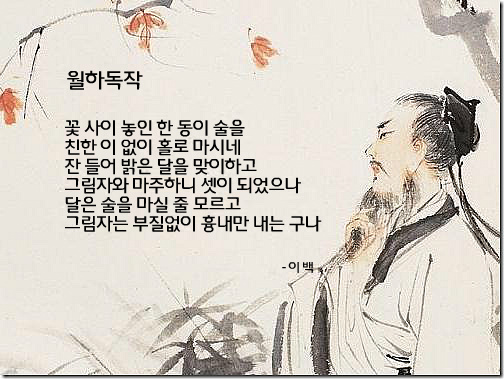 월하독작
꽃 사이 놓인 한 동이 술을
친한 이 없이 홀로 마시네
잔 들어 밝은 달을 맞이하고
그림자와 마주하니 셋이 되었으나
달은 술을 마실 줄 모르고
그림자는 부질없이 흉내만 내는 구나
- 이 백